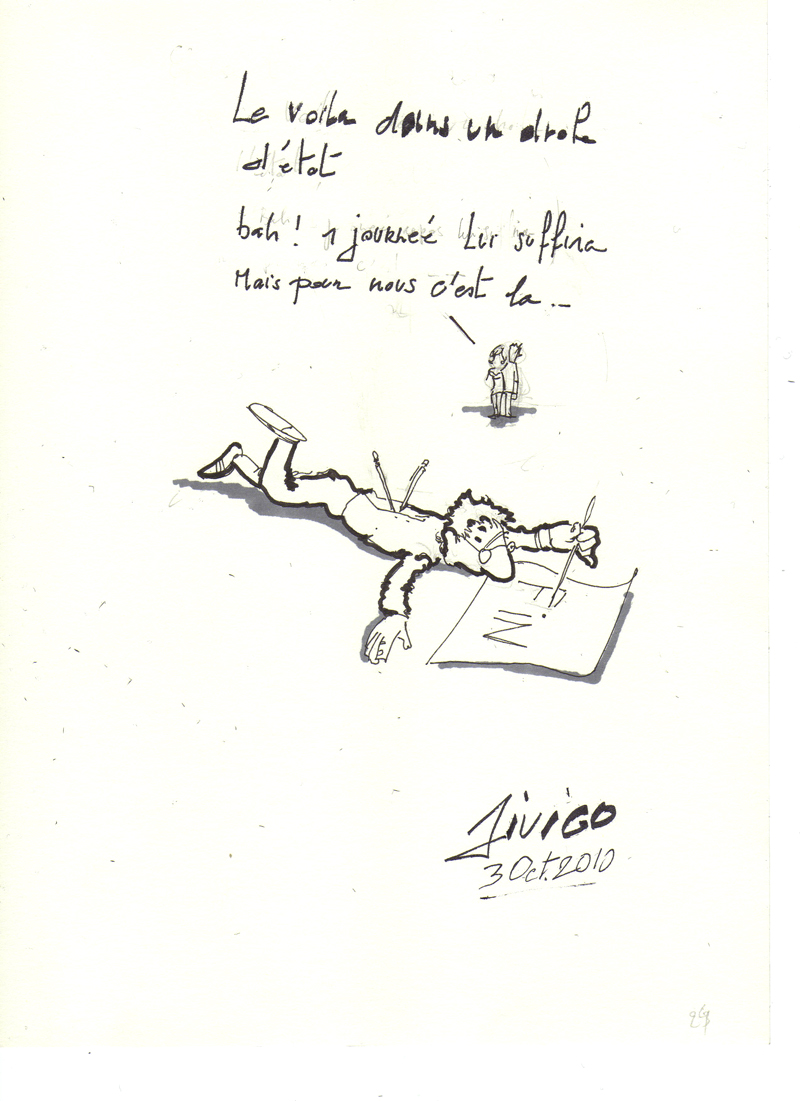 Le voila dans un drole
d'état
bah ! 1 journeé lui suffira
Mais pour nous c'est la ...
Jivigo
3 Oct. 2010